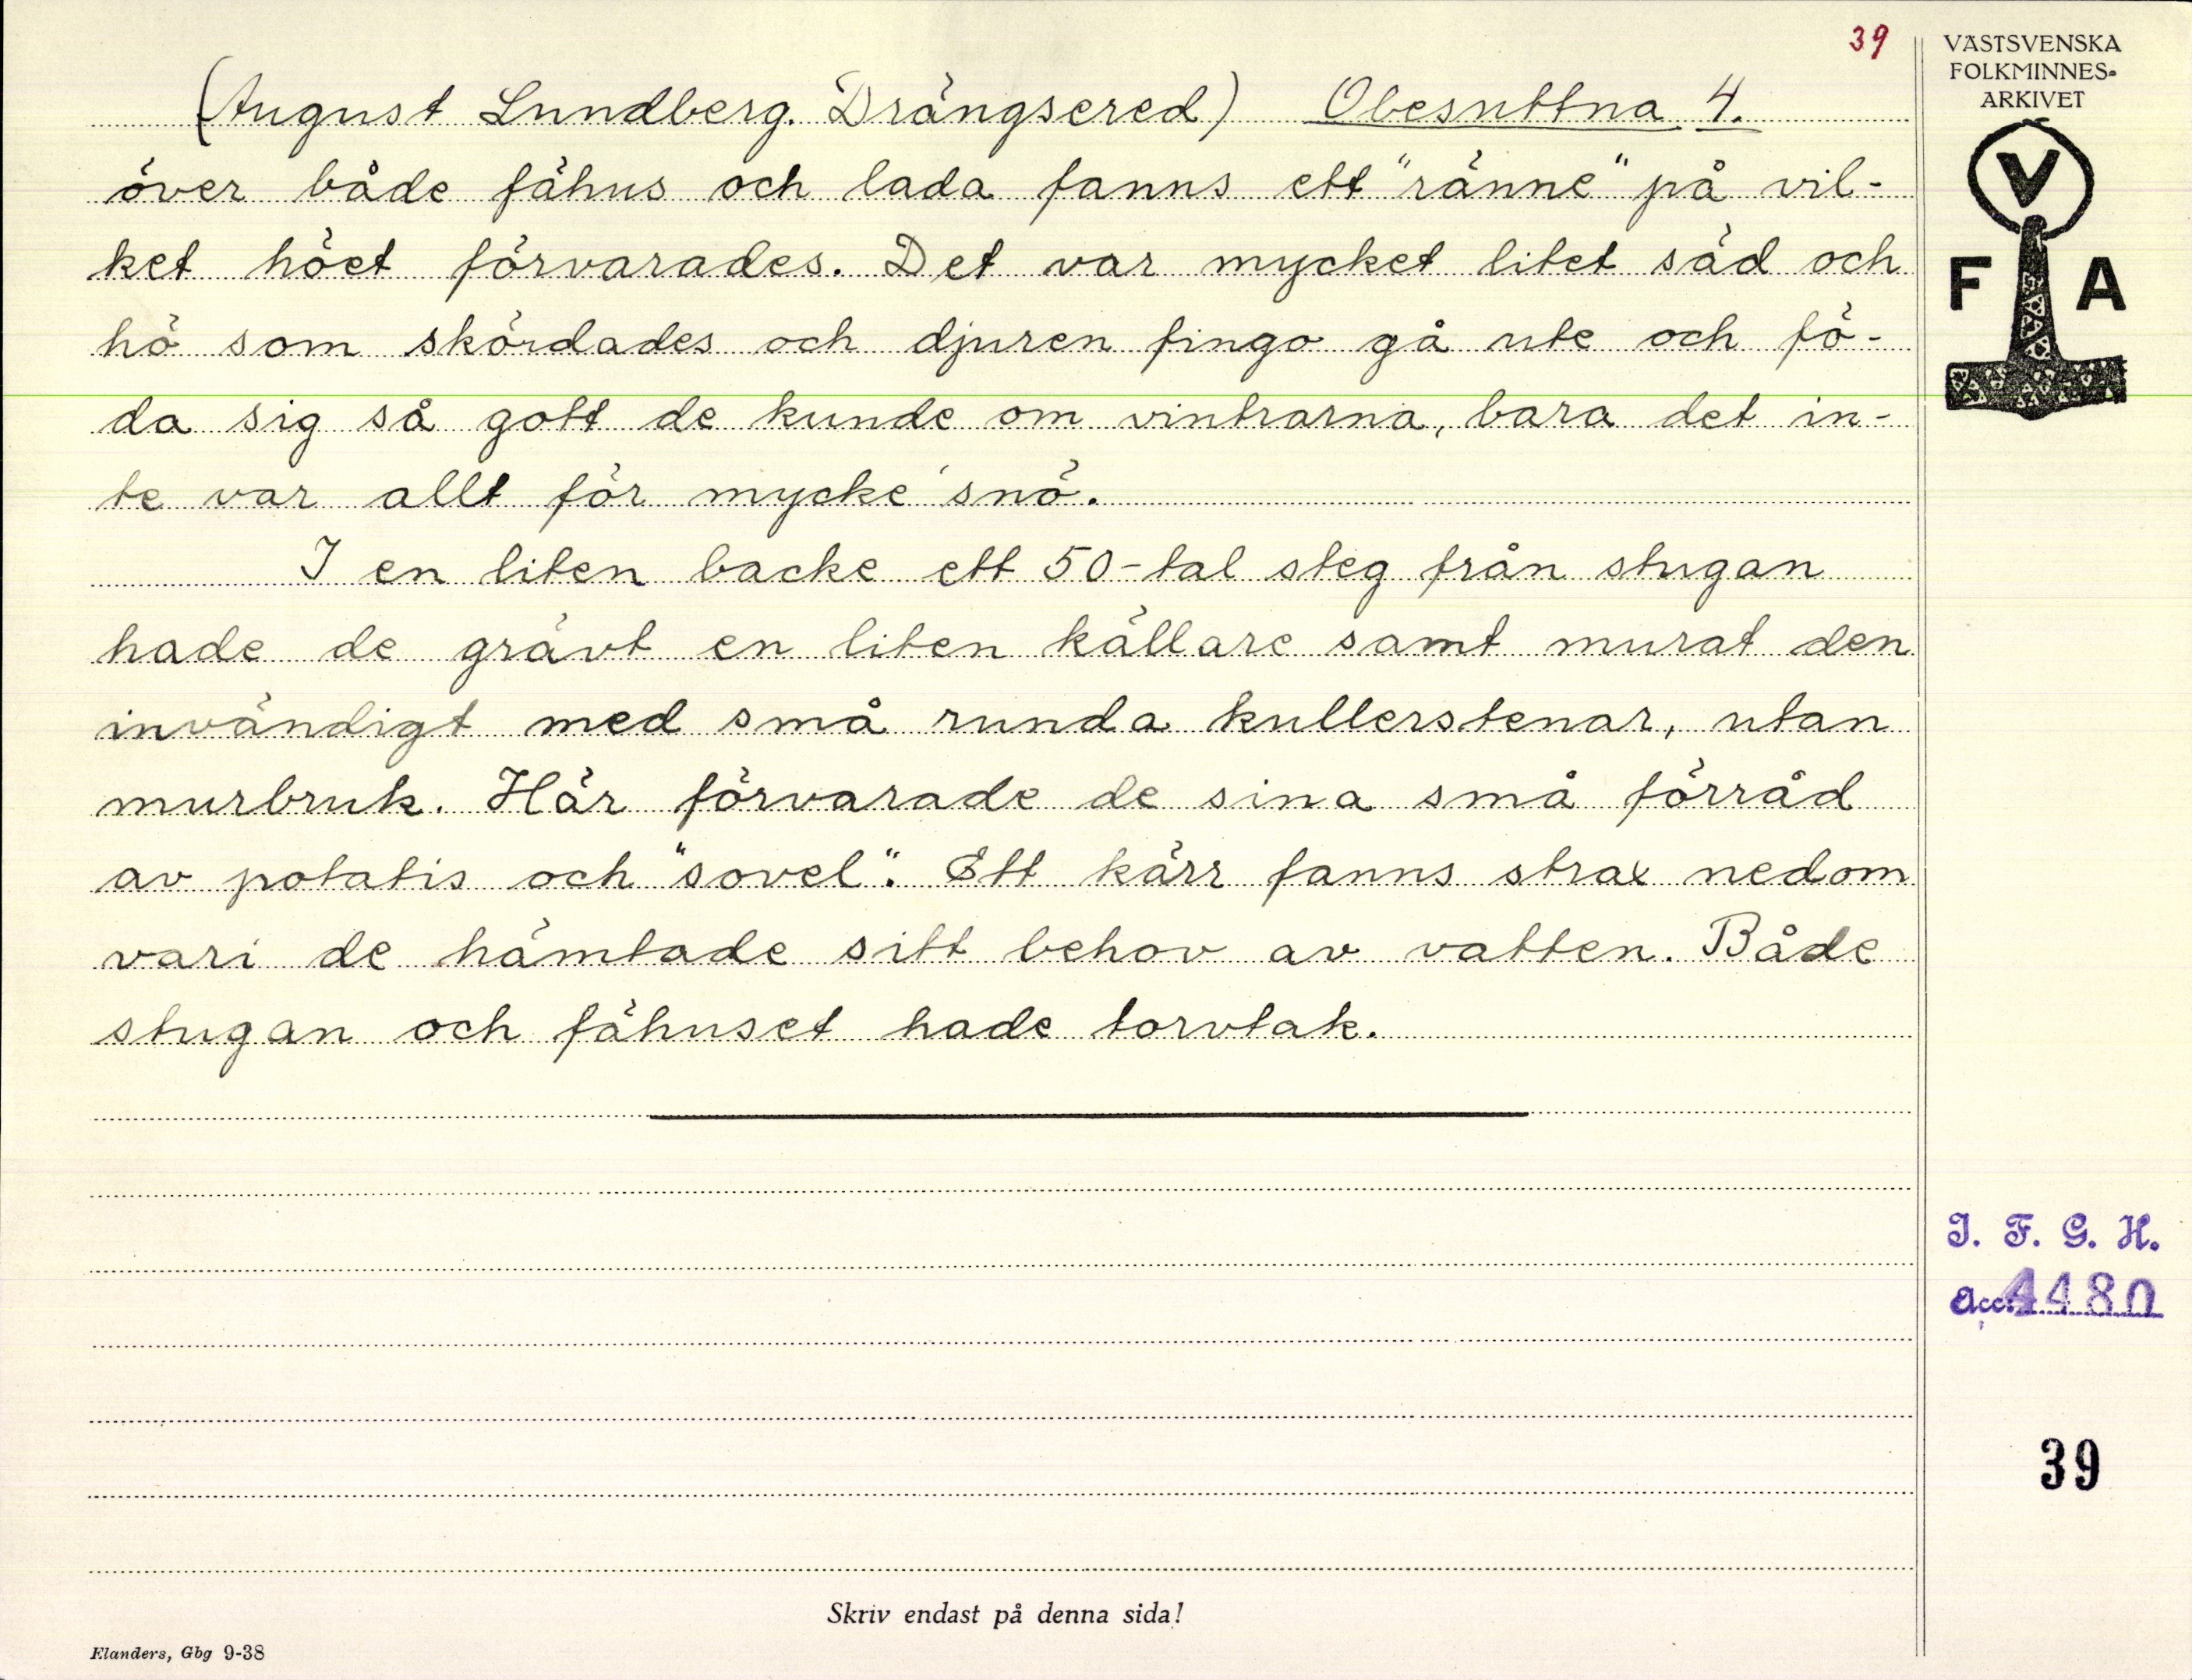 39
(August Lundberg. Drängsered) Obesuttna 4.
över både fähus och lada fanns ett "ränne" på vil-
ket höet förvarades. Det var mycket litet säd och
hö som skördades och djuren fingo gå ute och fö-
da sig så gott de kunde om vintrarna, bara det in-
te var allt för mycke' snö.
I en liten backe ett 50-tal steg från stugan
hade de grävt en liten källare samt murat den
invändigt med små runda kullerstenar, utan
murbruk. Här förvarade de sina små förråd
av potatis och "sovel". Ett kärr fanns strax nedom
vari de hämtade sitt behov av vatten. Både
stugan och fähuset hade torvtak.
Skriv endast på denna sida!
Elanders, Gbg 9-38
VÄSTSVENSKA
FOLKMINNES-
ARKIVET
V
F A
I. F. G. H.
acc. 4480
39